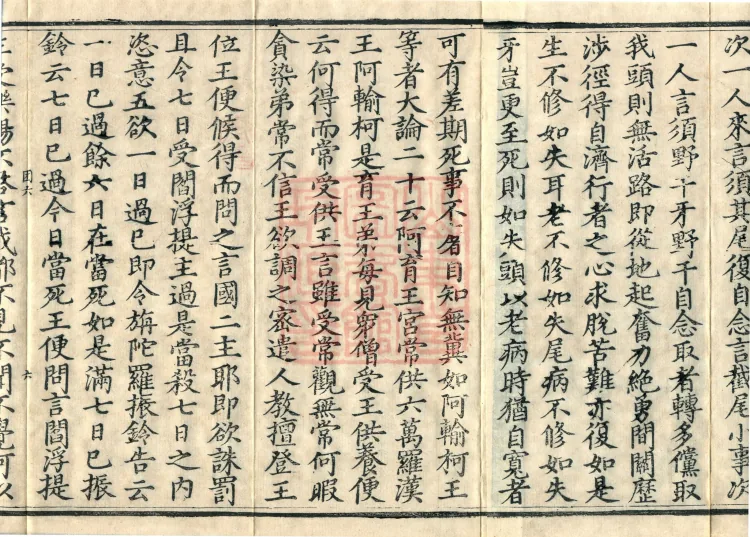 次一人來言須其尾復自念言截尾小事次
一人言須野干牙野干自念取者轉多儻取
我頭則無活路即從地起奮力絕勇間關歷
涉徑得自濟行者之心求脫苦難亦復如是
生不修如失耳老不修如失尾病不修如失
牙豈更至死則如失頭以老病時猶自寬者
可有差期死事不奢自知無冀如阿輸柯王
等者大論二十云阿育王宮常供六萬羅漢
王阿輸柯是育王弟每見眾僧受王供養便
云何得而常受供王言雖受常觀無常何暇
貪染弟常不信王欲調之密遣人教擅登王
位王便候得而問之言國二主耶即欲誅罰
且令七日受閻浮提主過是當殺七日之內
恣意五欲一日過已即令旃陀羅振鈴告云
一日已過餘六日在當死如是滿七日已振
鈴云七日已過今日當死王便問言閻浮提
六
王受樂暢不答言我都不見不聞不覺何以